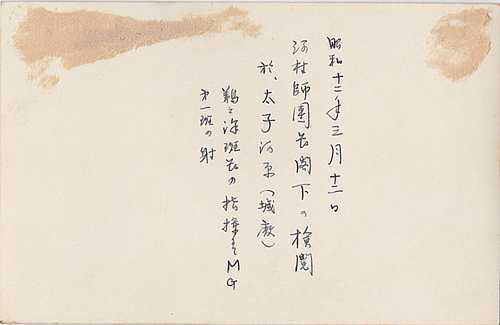 昭和十二年三月十二日
河村師團長閣下の検閲
於、太子河原(城廠)
鵜之澤班長の指揮する MG
才一班の射